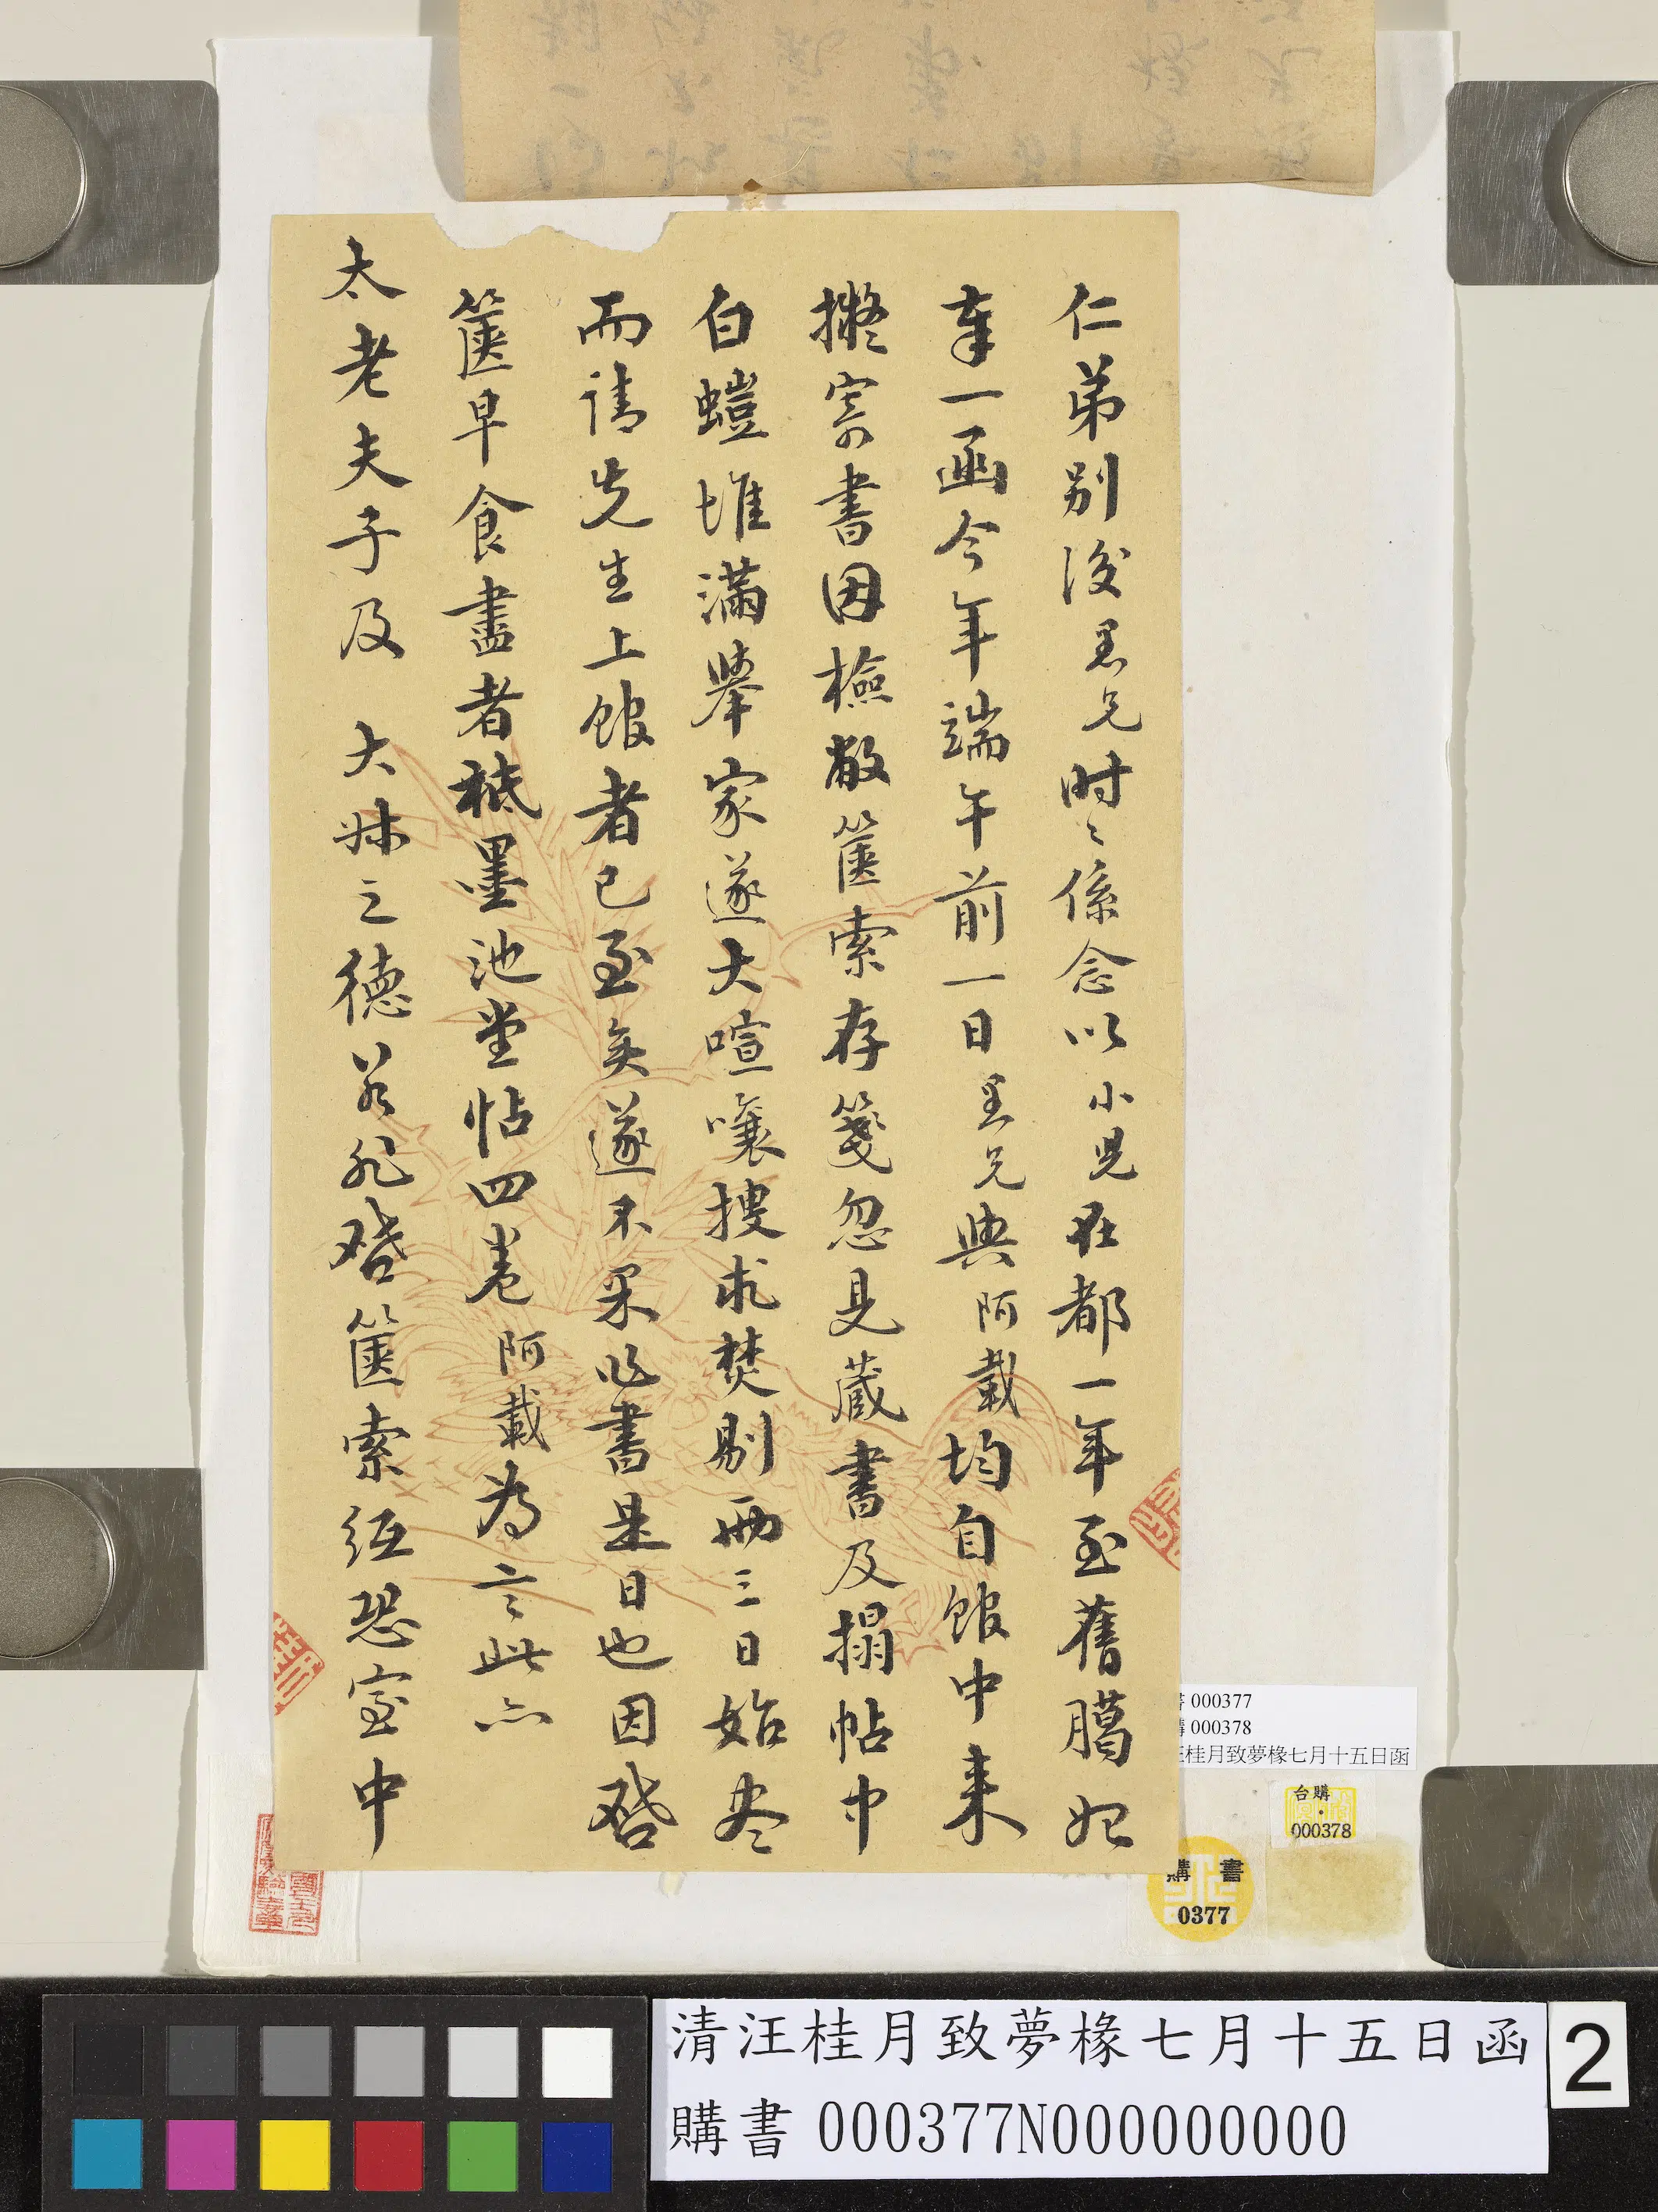 仁弟別後愚兄时〻係念以小兒在都一年至舊臈始
奉一函今年端午前一日愚兄與阿載均自館中来
擬寄書因檢敝篋索存箋忽見藏書及搨帖中
白螘堆滿舉家遂大喧嚷搜求焚剔两三日始尽
而請先生上館者已至矣遂不果作書是日也因啓
篋早食盡者秪墨池堂帖四卷阿載為言此亦
太老夫子及 大妹之德若非啓篋索紙恐室中
000377
000378
汪桂月致夢椽七月十五日函
台購
000378
購書
0377
清汪桂月致夢椽七月十五日函
購書 000377N000000000
2